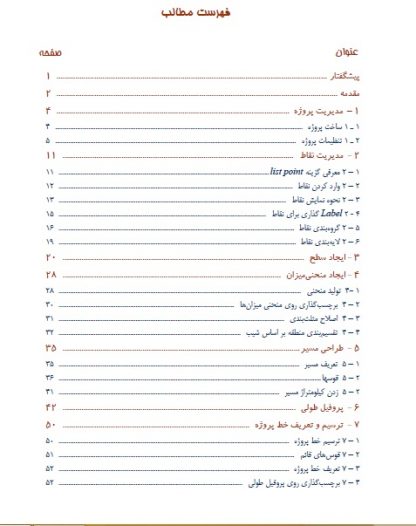 فهرست مطالب
عنوان صفحه
پیشگفتار ۱
مقدمه ۲
۱ – مدیریت پروژه ۴
۱ ـ ۱ ساخت پروژه ۴
۲ ـ ۱ تنظیمات پروژه ۵
۲ – مدیریت نقاط ۱۱
۱ – ۲ معرفی گزینه list point ۱۱
۲ – ۲ وارد کردن نقاط ۱۲
۳ – ۲ نحوه نمایش نقاط ۱۳
۴ - ۲ Label گذاری برای نقاط ۱۵
۵ – ۲ گروه‌بندی نقاط ۱۶
۶ – ۲ لایه‌بندی نقاط ۱۹
۳ – ایجاد سطح ۲۰
۴ – ایجاد منحنی‌میزان ۲۸
۱ –۴ تولید منحنی ۲۸
۲ – ۴ برچسب‌گذاری روی منحنی میزان‌ها ۳۰
۳ – ۴ اصلاح مثلث‌بندی ۳۱
۴ – ۴ تقسیم‌بندی منطقه بر اساس شیب ۳۲
۵ – طراحی مسیر ۳۵
۱ – ۵ تعریف مسیر ۳۵
۲ – ۵ قوسها ۳۶
۲ – ۵ زدن کیلومتراژ مسیر ۴۱
۶ – پروفیل طولی ۴۲
۷ – ترسیم و تعریف خط پروژه ۵۰
۱ – ۷ ترسیم خط پروژه ۵۰
۲ – ۷ قوس‌های قائم ۵۱
۳ – ۷ تعریف خط پروژه ۵۲
۴ – ۷ برچسب‌گذاری روی پروفیل طولی ۵۲